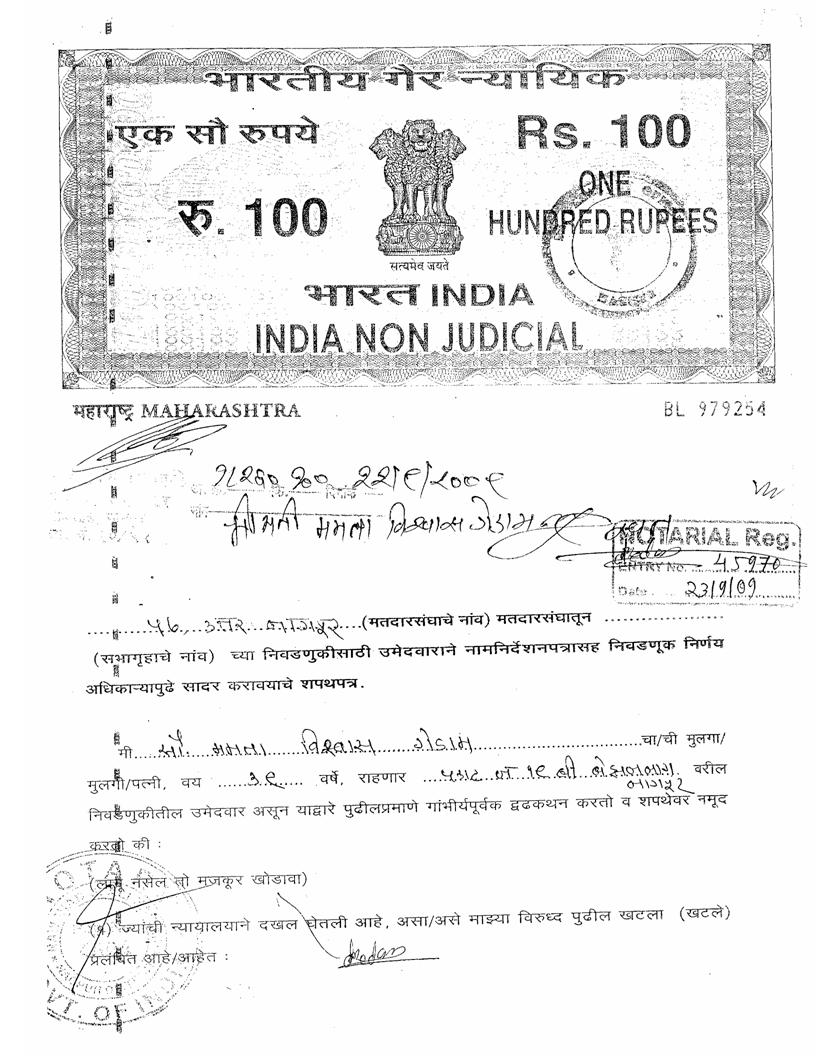 भारतीय गैर न्यायिक
एक सौ रुपये
Rs. 100
रु. 100
ONE
HUNDRED RUPEES
सत्यमेव जयते
भारत INDIA
INDIA NON JUDICIAL
महाराष्ट्र MAHARASHTRA
BL 979254
श्रीमती ममता विश्वास गेडाम
NOTARIAL Reg.
ENTRY NO. 45970
Date 23/9/09
५७, उत्तर नागपूर (मतदारसंघाचे नांव) मतदारसंघातून ....................
(सभागृहाचे नांव) च्या निवडणुकीसाठी उमेदवाराने नामनिर्देशनपत्रासह निवडणूक निर्णय
अधिकाऱ्यापुढे सादर करावयाचे शपथपत्र.
मी.....सौ. ममता विश्वास गेडाम..............................चा/ची मुलगा/
मुलगी/पत्नी, वय ......३९..... वर्षे, राहणार वरील
नागपूर
निवडणुकीतील उमेदवार असून याद्वारे पुढीलप्रमाणे गांभीर्यपूर्वक द्वढकथन करतो व शपथेवर नमूद
करतो की :
(लागू नसेल तो मजकूर खोडावा)
(१) ज्यांची न्यायालयाने दखल घेतली आहे, असा/असे माझ्या विरुध्द पुढील खटला (खटले)
प्रलंबित आहे/आहेत :